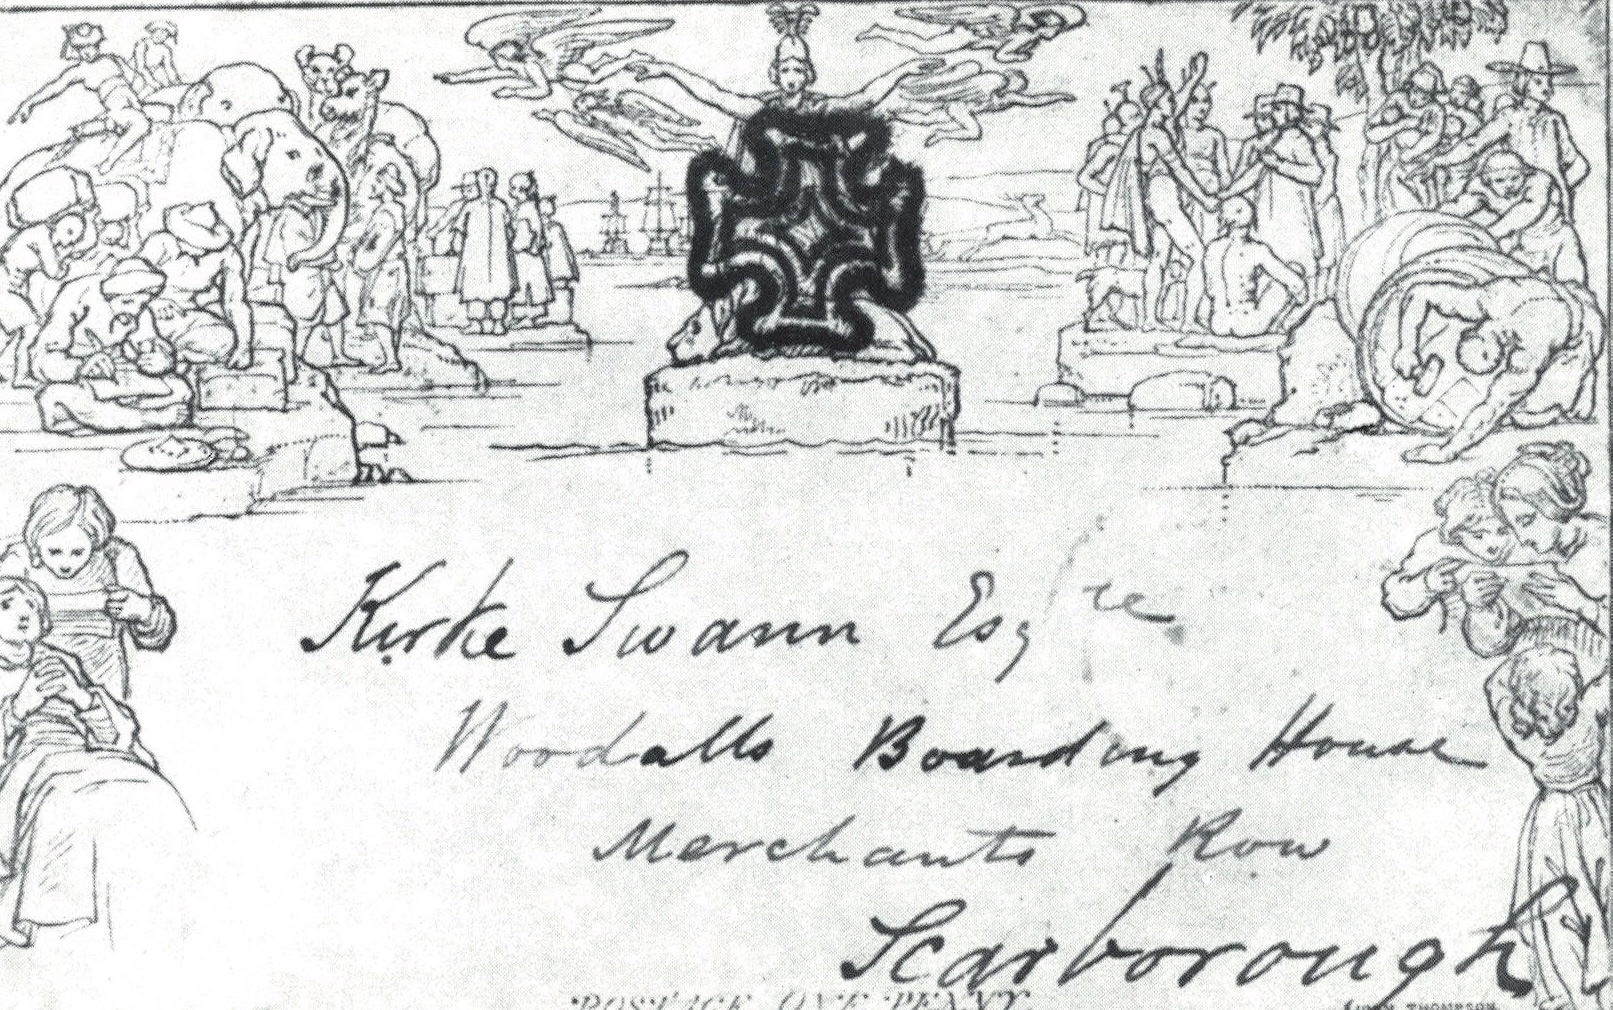 Kirke Swann Esqre
Woodalls Boarding House
Merchants Row
Scarborough
POSTAGE ONE PENNY
JOHN THOMPSON